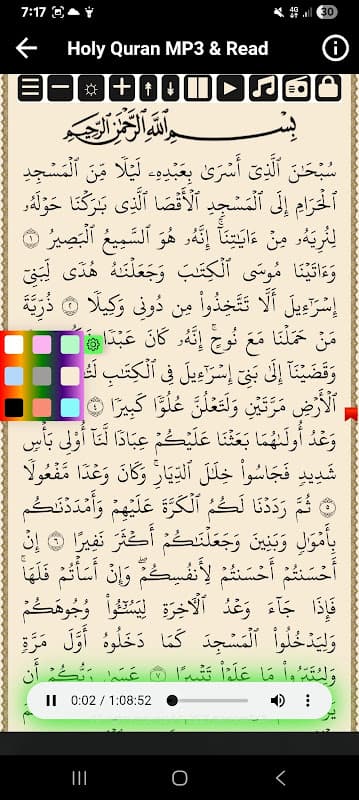 7:17
4G
30
Holy Quran MP3 & Read
بِسْمِ اللَّهِ الرَّحْمَٰنِ الرَّحِيمِ
سُبْحَٰنَ ٱلَّذِىٓ أَسْرَىٰ بِعَبْدِهِۦ لَيْلًا مِّنَ ٱلْمَسْجِدِ
ٱلْحَرَامِ إِلَى ٱلْمَسْجِدِ ٱلْأَقْصَا ٱلَّذِى بَٰرَكْنَا حَوْلَهُۥ
لِنُرِيَهُۥ مِنْ ءَايَٰتِنَآ ۚ إِنَّهُۥ هُوَ ٱلسَّمِيعُ ٱلْبَصِيرُ ١
وَءَاتَيْنَا مُوسَى ٱلْكِتَٰبَ وَجَعَلْنَٰهُ هُدًى لِّبَنِىٓ
إِسْرَٰٓءِيلَ أَلَّا تَتَّخِذُوا۟ مِن دُونِى وَكِيلًا ٢ ذُرِّيَّةَ
مَنْ حَمَلْنَا مَعَ نُوحٍ ۚ إِنَّهُۥ كَانَ عَبْدًا
وَقَضَيْنَآ إِلَىٰ بَنِىٓ إِسْرَٰٓءِيلَ فِى ٱلْكِتَٰبِ
ٱلْأَرْضِ مَرَّتَيْنِ وَلَتَعْلُنَّ عُلُوًّا كَبِيرًا ٤
وَعْدُ أُولَىٰهُمَا بَعَثْنَا عَلَيْكُمْ عِبَادًا لَّنَآ أُو۟لِى بَأْسٍ
شَدِيدٍ فَجَاسُوا۟ خِلَٰلَ ٱلدِّيَارِ ۚ وَكَانَ وَعْدًا مَّفْعُولًا
٥ ثُمَّ رَدَدْنَا لَكُمُ ٱلْكَرَّةَ عَلَيْهِمْ وَأَمْدَدْنَٰكُم
بِأَمْوَٰلٍ وَبَنِينَ وَجَعَلْنَٰكُمْ أَكْثَرَ نَفِيرًا ٦ إِنْ
أَحْسَنتُمْ أَحْسَنتُمْ لِأَنفُسِكُمْ ۖ وَإِنْ أَسَأْتُمْ فَلَهَا ۚ
فَإِذَا جَآءَ وَعْدُ ٱلْءَاخِرَةِ لِيَسُۥٓـُٔوا۟ وُجُوهَكُمْ
وَلِيَدْخُلُوا۟ ٱلْمَسْجِدَ كَمَا دَخَلُوهُ أَوَّلَ مَرَّةٍ
وَلِيُتَبِّرُوا۟ مَا عَلَوْا۟ تَتْبِيرًا ٧ عَسَىٰ رَبُّكُمْ أَن
0:02 / 1:08:52